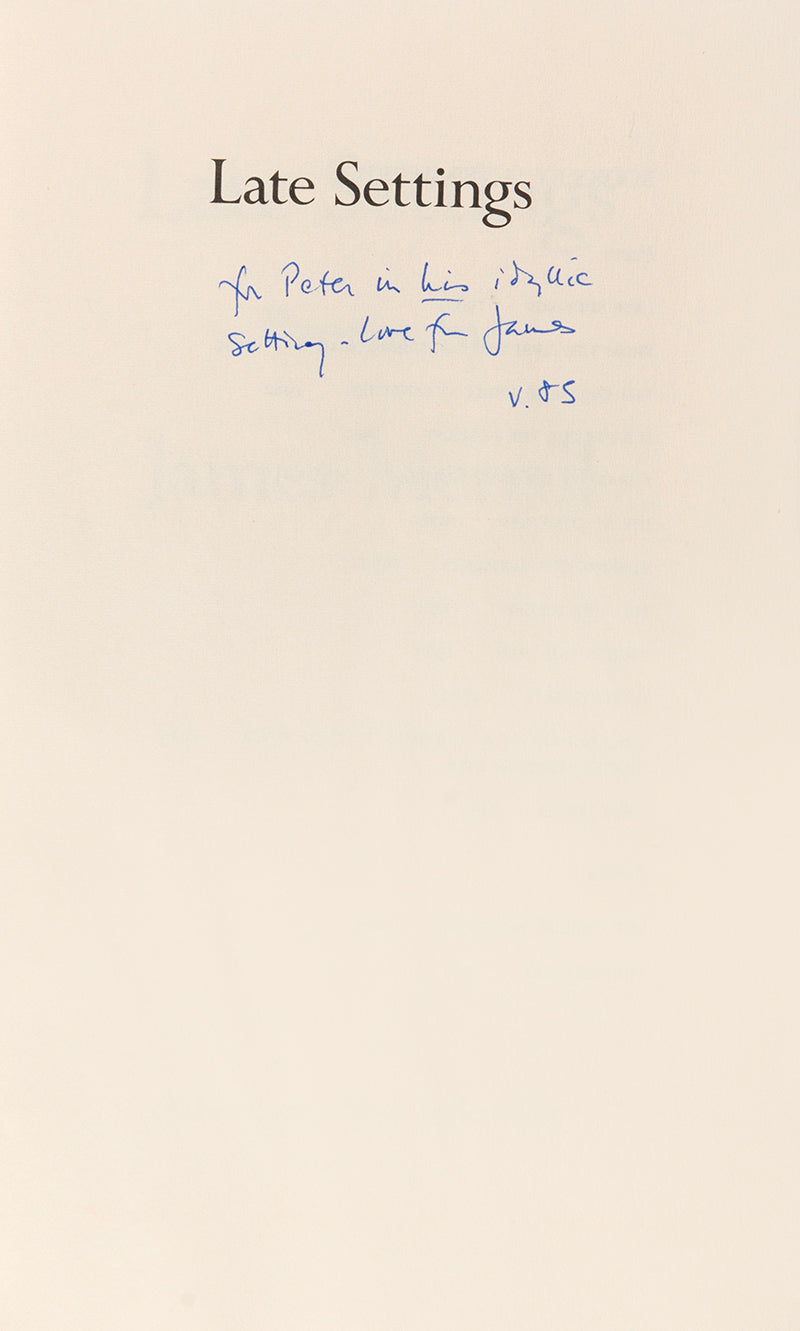 Late Settings
for Peter in his idyllic
Setting - Love from James
V. 85